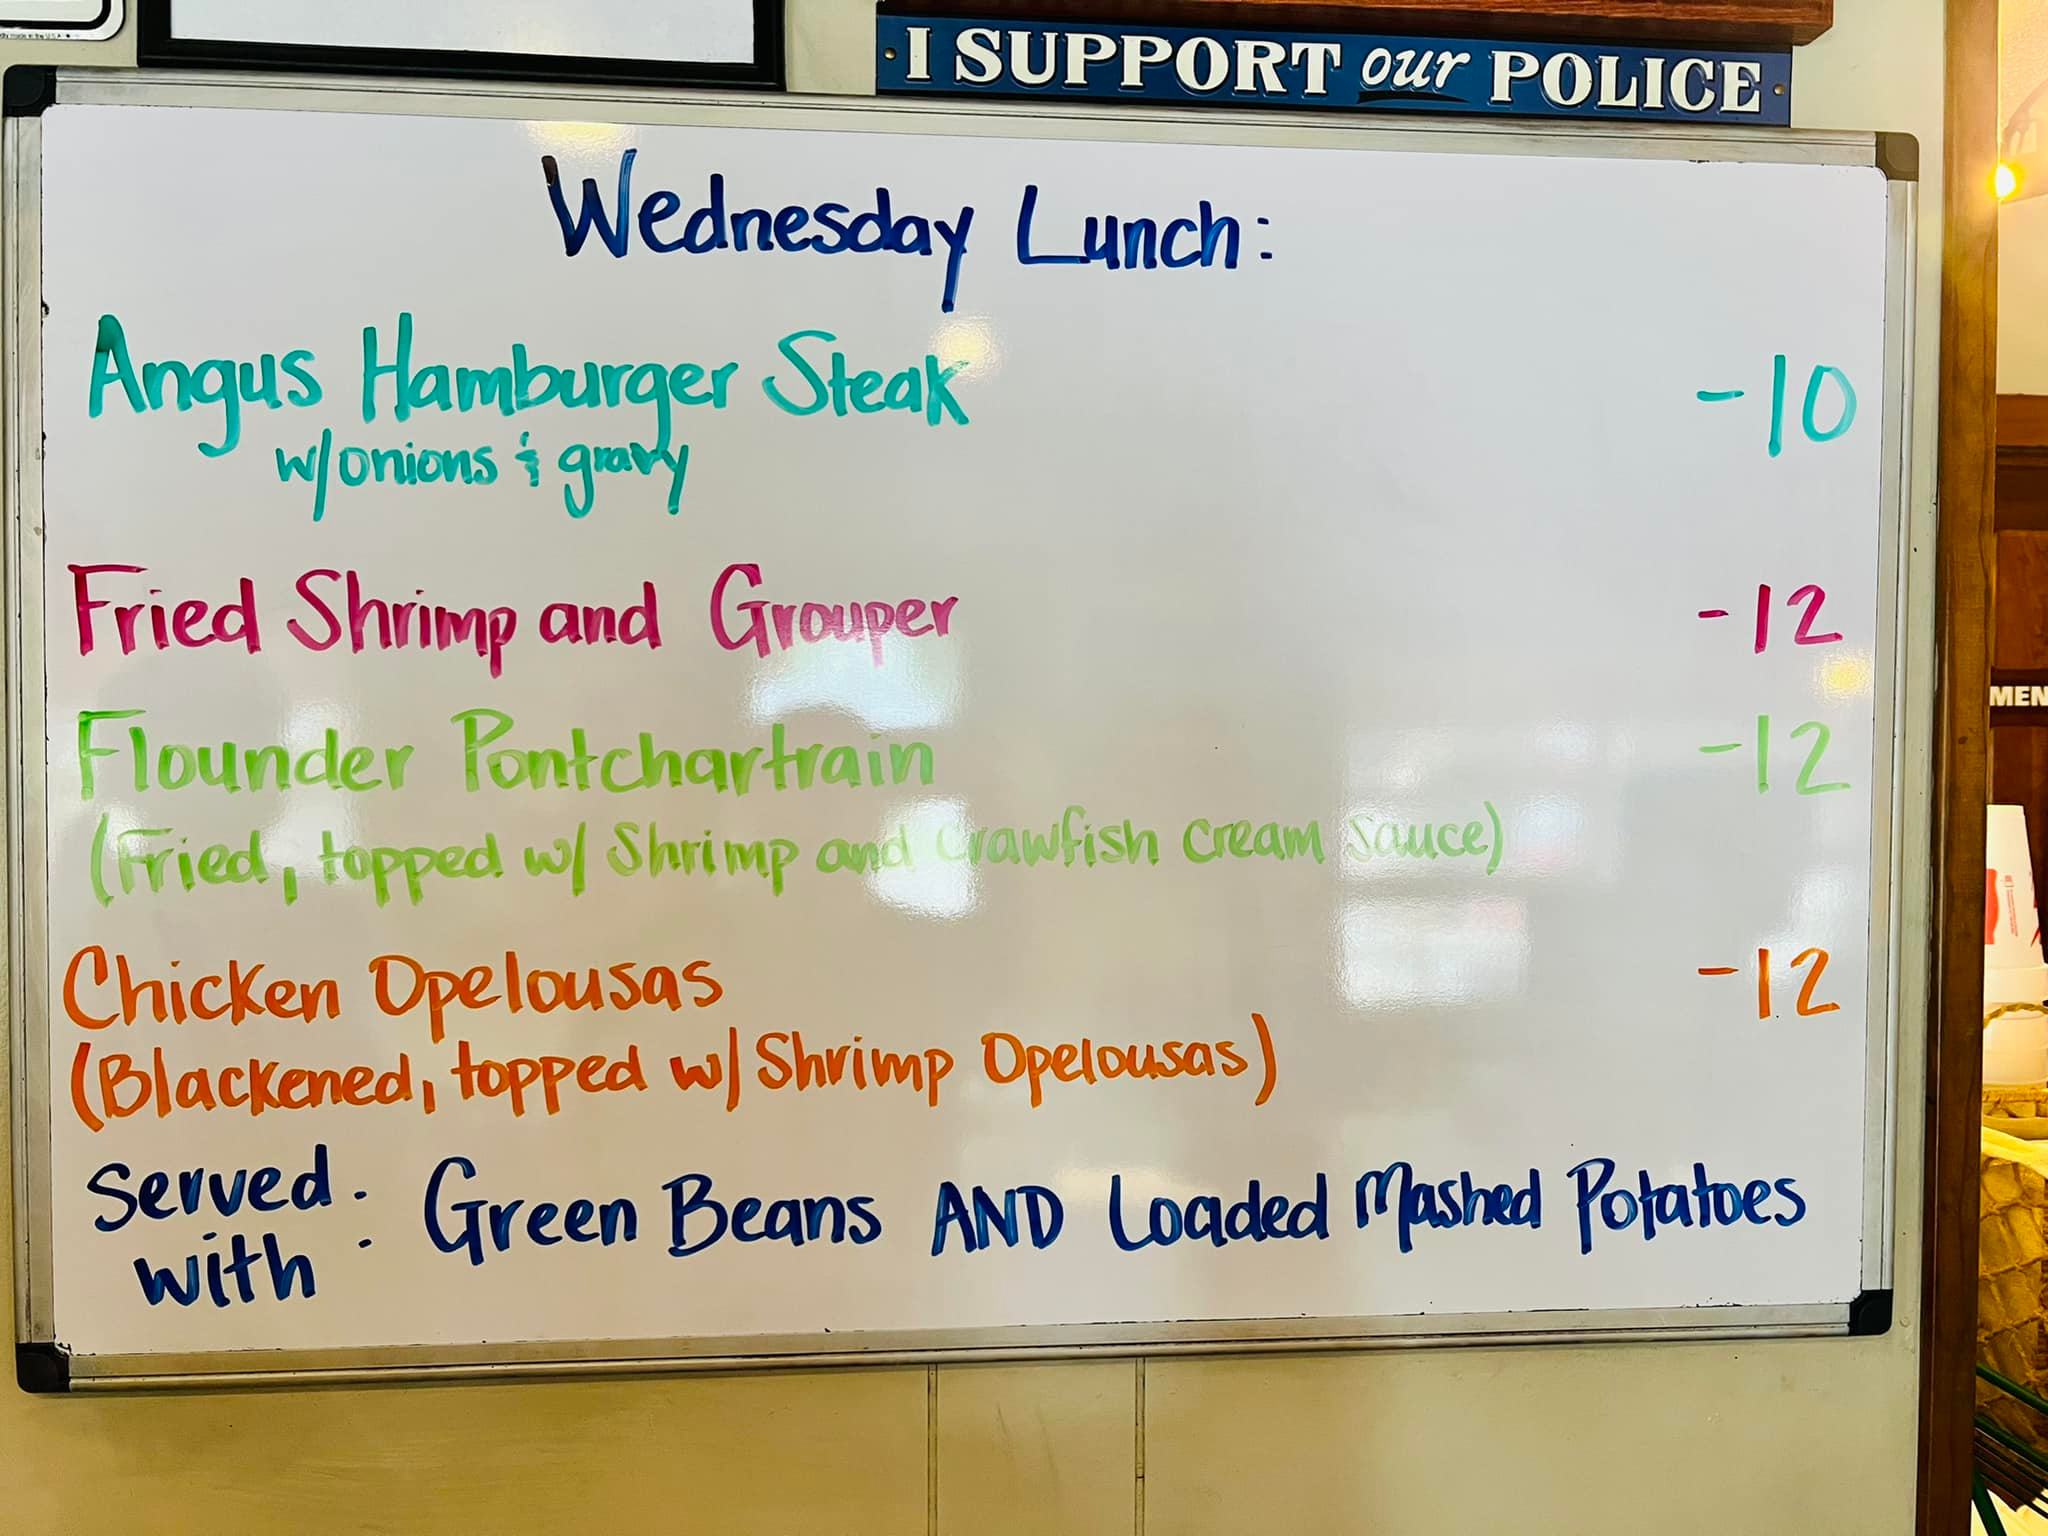 I SUPPORT our POLICE
Wednesday Lunch:
Angus Hamburger Steak -10
w/onions & gravy
Fried Shrimp and Grouper -12
Flounder Pontchartrain -12
(Fried, topped w/ Shrimp and Crawfish Cream Sauce)
Chicken Opelousas -12
(Blackened, topped w/ Shrimp Opelousas)
Served : Green Beans AND Loaded Mashed Potatoes
with
MEN